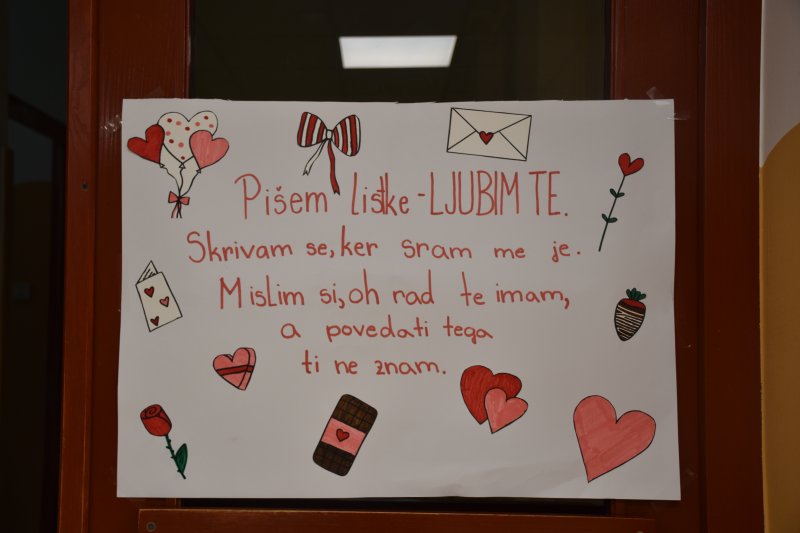 Pišem listke - LJUBIM TE.
Skrivam se, ker sram me je.
Mislim si, oh rad te imam,
a povedati tega
ti ne znam.